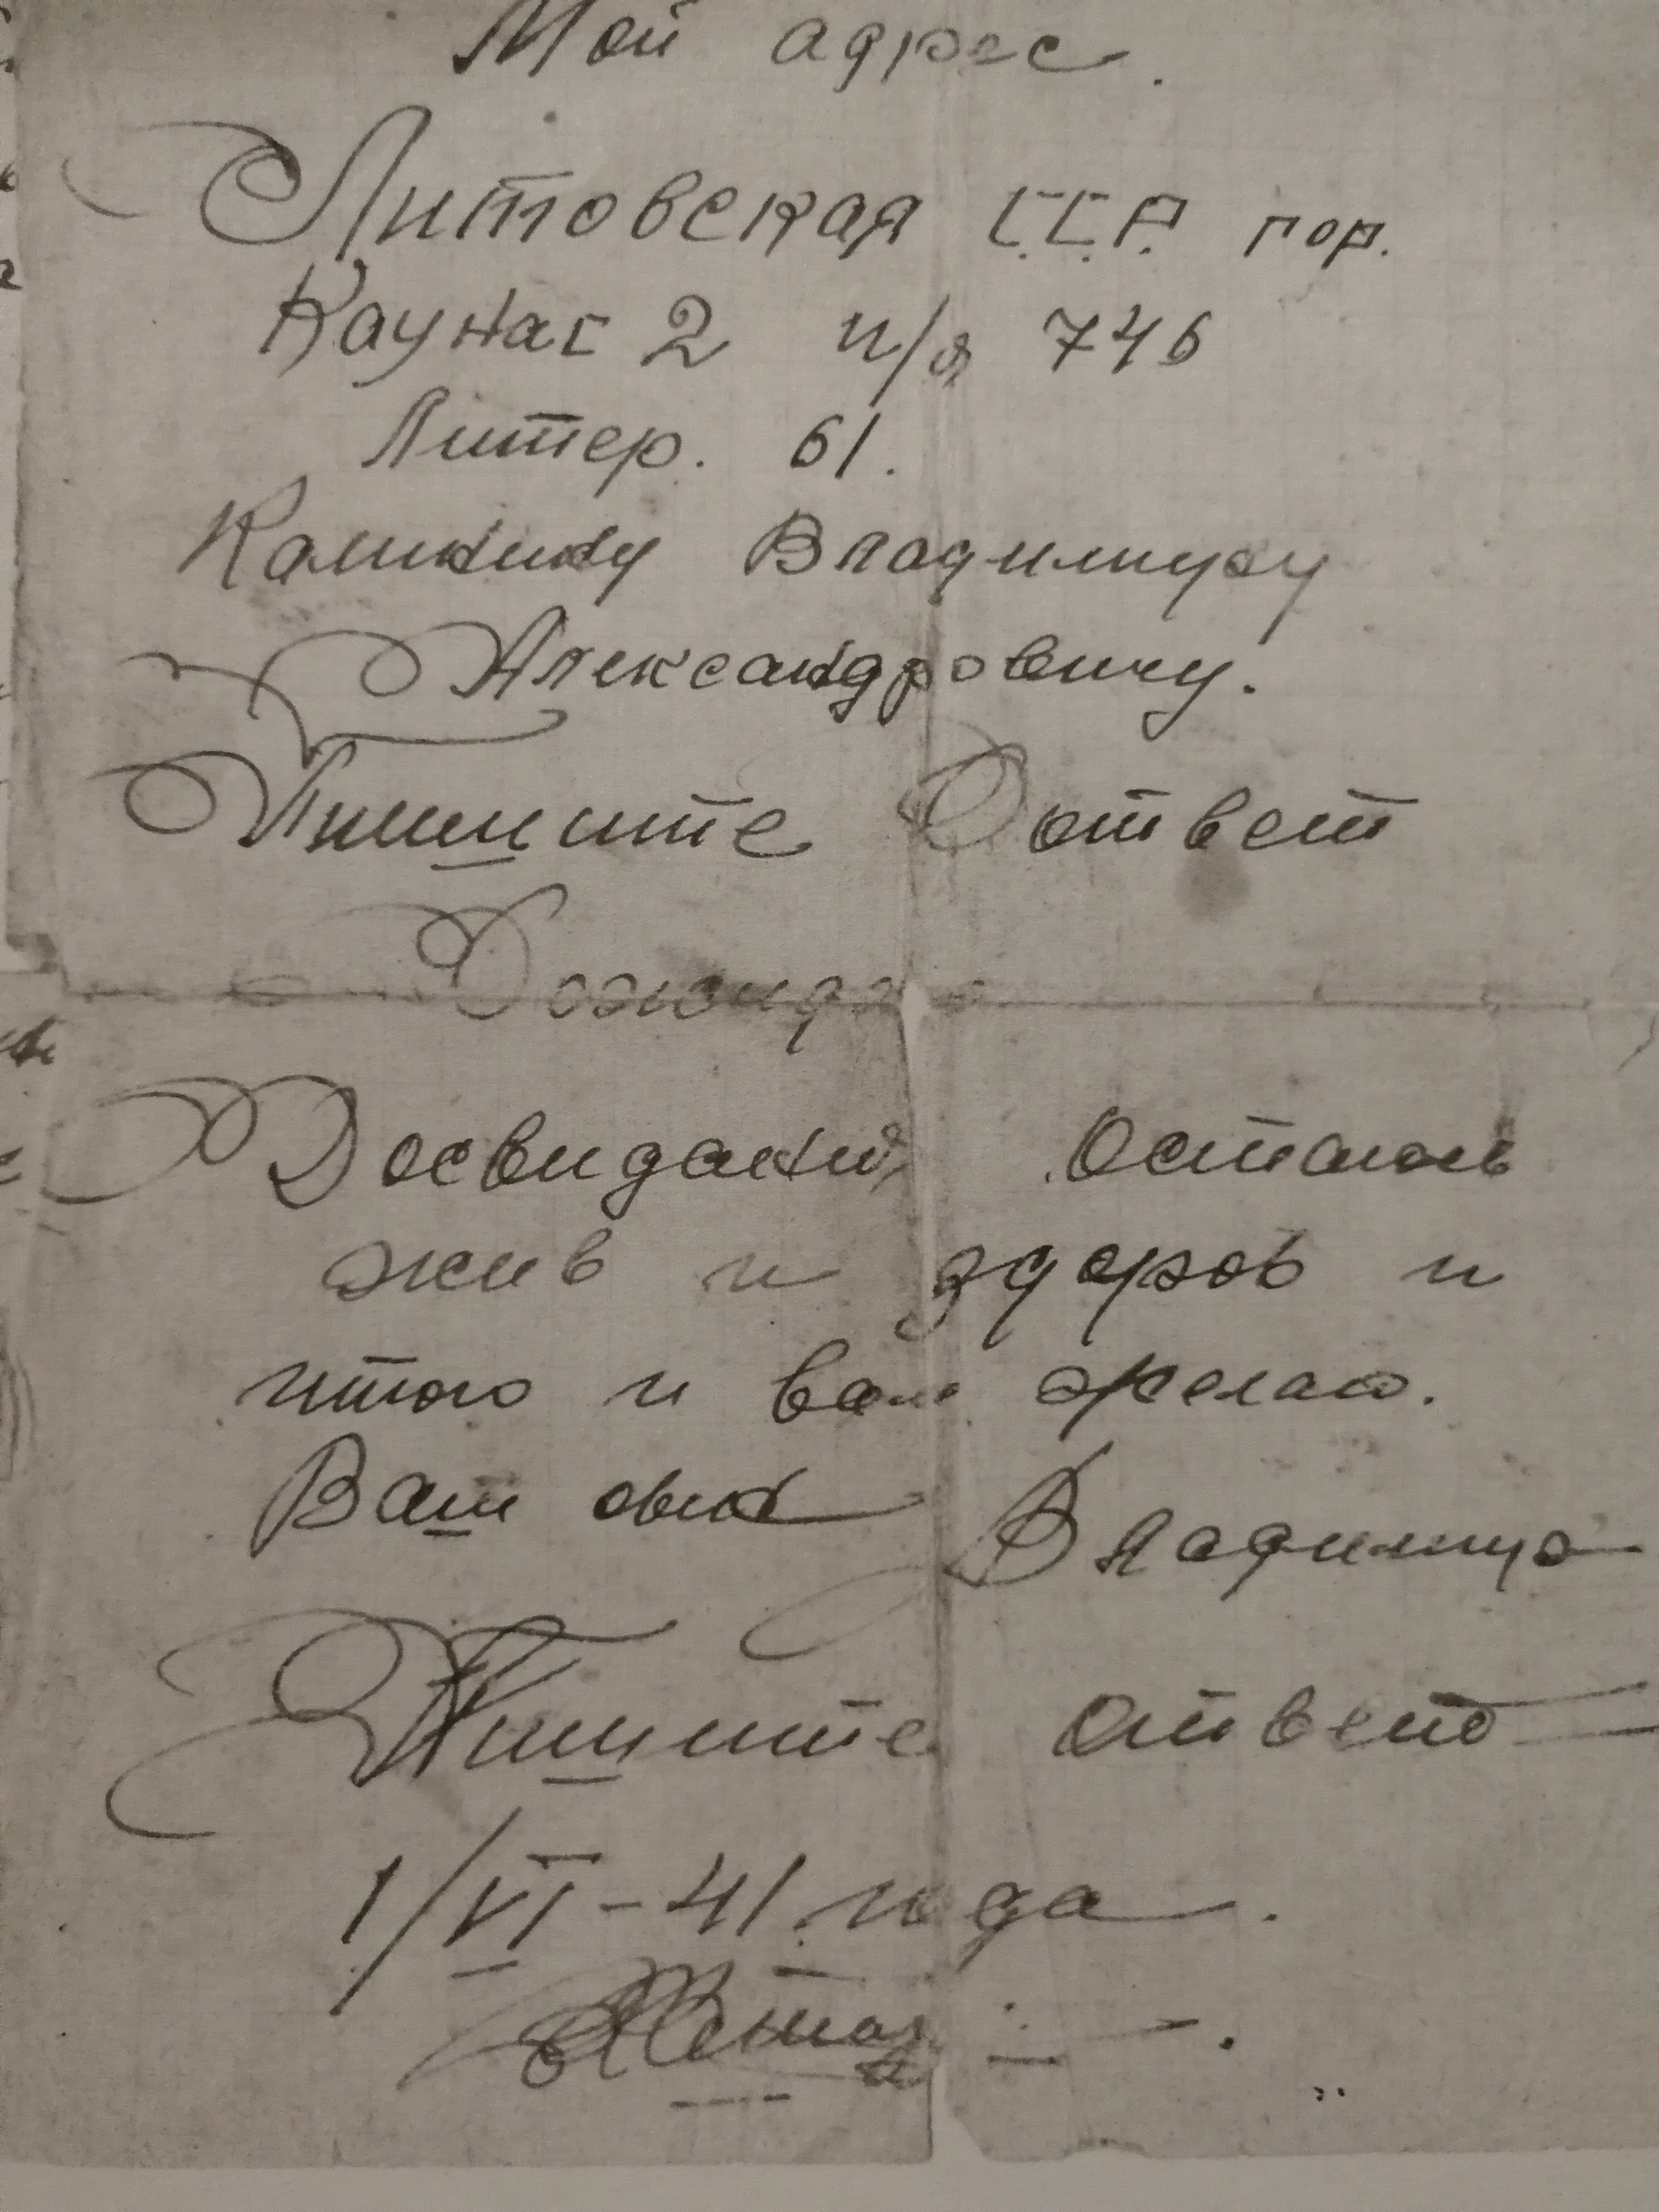 Мой адрес.
Литовская С.С.Р. гор.
Каунас 2 п/я 746
Литер. 61.
Владимиру
Александровичу.
Пишите ответ
Досвидания остаюсь
жив и здоров и
чтого и вам желаю.
Ваш сын Владимир
Пишите ответ
1/VI-41 года.